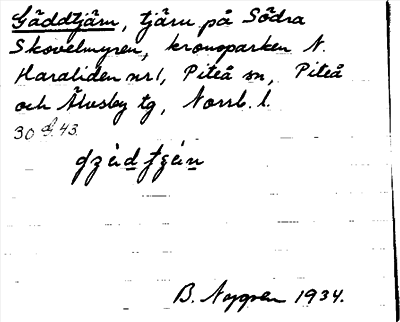 Gäddtjärn, tjärn på Södra
Skovelmyren, kronoparken N.
Haraliden nr 1, Piteå sn, Piteå
och Älvsby tg, Norrb. l.
30 43.
B. Nygren 1934.